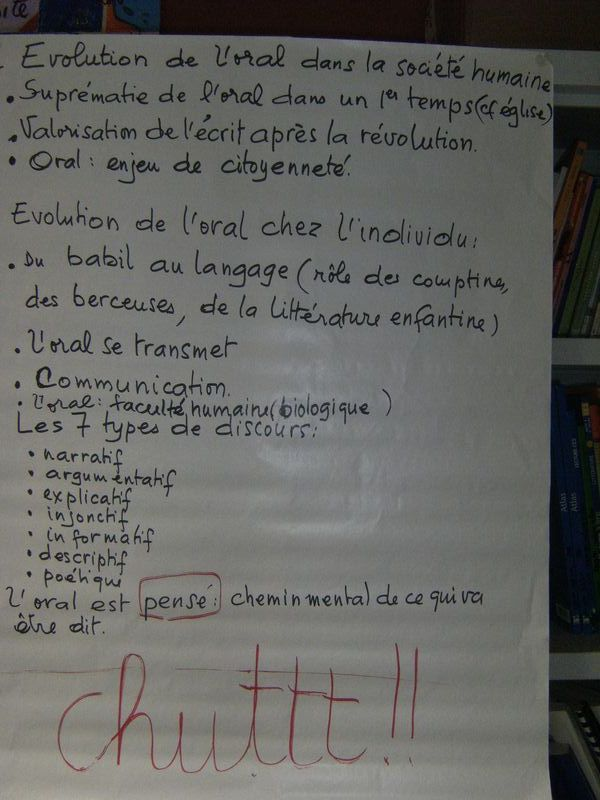 Evolution de l'oral dans la société humaine
• Suprématie de l'oral dans un 1er temps (cf église)
• Valorisation de l'écrit après la révolution.
• Oral : enjeu de citoyenneté.
Evolution de l'oral chez l'individu :
• Du babil au langage (rôle des comptine,
des berceuses, de la littérature enfantine)
• L'oral se transmet
• Communication.
• L'oral : faculté humaine (biologique )
Les 7 types de discours :
• narratif
• argumentatif
• explicatif
• injonctif
• informatif
• descriptif
• poétique
L'oral est pensé : chemin mental de ce qui va
être dit.
chuttt !!
Atlas
Atlas